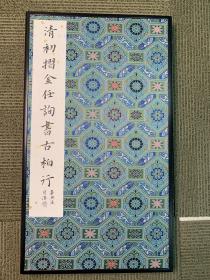 清初搨金任詢書古柏行